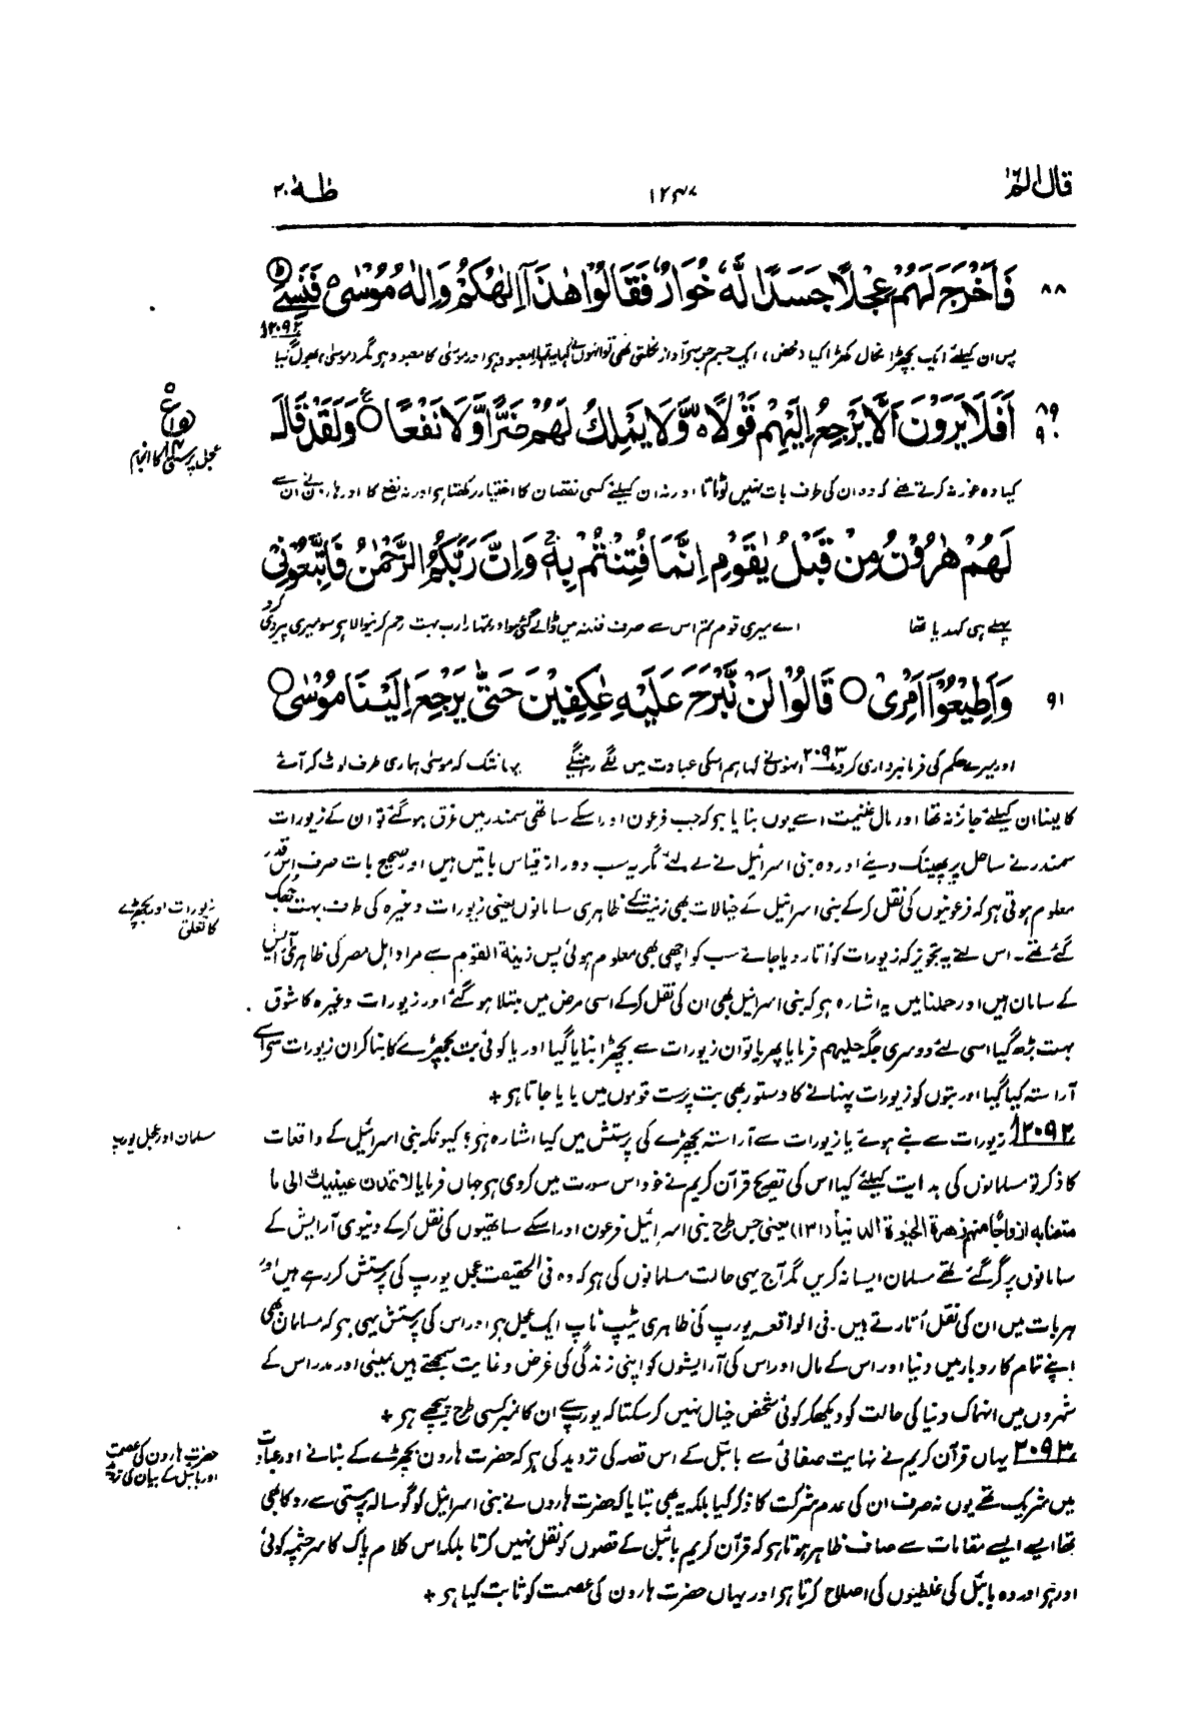 قال الم ١٦
١٢٤٧
طٰهٰ ٢٠
٨٨ فَاَخْرَجَ لَهُمْ عِجْلًا جَسَدًا لَّهٗ خُوَارٌ فَقَالُوْا هٰذَآ اِلٰهُكُمْ وَاِلٰهُ مُوْسٰى فَنَسِيَ
٢٠٩٢
پس ان کیلئے ایک بچھڑا نکال کھڑا کیا (محض) ایک جسم جس سے آواز نکلتی تھی تو انہوں نے کہا یہ تمہارا معبود ہے اور موسٰی کا معبود ہو مگر وہ موسٰی بھول گیا
٨٩ اَفَلَا يَرَوْنَ اَلَّا يَرْجِعُ اِلَيْهِمْ قَوْلًا ەۙ وَّلَا يَمْلِكُ لَهُمْ ضَرًّا وَّلَا نَفْعًا ۝ وَلَقَدْ قَالَ
٩٠
عجل پرستی کا انجام
کیا وہ غور نہ کرتے تھے کہ وہ ان کی طرف بات نہیں لوٹاتا اور نہ ان کیلئے کسی نقصان کا اختیار رکھتا ہو اور نہ نفع کا اور ہارون نے ان سے
لَهُمْ هٰرُوْنُ مِنْ قَبْلُ يٰقَوْمِ اِنَّمَا فُتِنْتُمْ بِهٖ ۚ وَاِنَّ رَبَّكُمُ الرَّحْمٰنُ فَاتَّبِعُوْنِيْ
پہلے ہی کہدیا تھا اے میری قوم تم اس سے صرف فتنہ میں ڈالے گئے ہو اور تمہارا رب بہت رحم کرنیوالا ہو سو میری پیروی کرو
٩١ وَاَطِيْعُوْٓا اَمْرِىْ ۝ قَالُوْا لَنْ نَّبْرَحَ عَلَيْهِ عٰكِفِيْنَ حَتّٰى يَرْجِعَ اِلَيْنَا مُوْسٰى ۝
اور میرے حکم کی فرمانبرداری کرو ٢٠٩٣ انہوں نے کہا ہم اسکی عبادت میں لگے رہینگے یہانتک کہ موسٰی ہماری طرف لوٹ کر آئے
کا لینا ان کیلئے جائز نہ تھا اور مال غنیمت اسے یوں بنایا ہو کہ جب فرعون اور اسکے ساتھی سمندر میں غرق ہو گئے تو ان کے زیورات
سمندر نے ساحل پر پھینک دیئے اور وہ بنی اسرائیل نے لے لئے مگر یہ سب دور از قیاس باتیں ہیں اور صحیح بات صرف اس قدر
زیورات اور بچھڑے کا تعلق
معلوم ہوتی ہو کہ فرعونیوں کی نقل کر کے بنی اسرائیل کے خیالات بھی زینت کے ظاہری سامانوں یعنی زیورات وغیرہ کی طرف بہت جھک
گئے تھے۔ اس لئے یہ تجویز کہ زیورات کو اُتار دیا جائے سب کو اچھی بھی معلوم ہوئی پس زینة القوم سے مراد اہل مصر کی ظاہری آرایش
کے سامان ہیں اور حملنا میں یہ اشارہ ہو کہ بنی اسرائیل بھی ان کی نقل کر کے اسی مرض میں مبتلا ہو گئے اور زیورات وغیرہ کا شوق
بہت بڑھ گیا اسی لئے دوسری جگہ حلیہم فرمایا پھر یا تو ان زیورات سے بچھڑا بنایا گیا اور یا کوئی بت بچھڑے کا بنا کر ان زیورات سے اسے
آراستہ کیا گیا اور بتوں کو زیورات پہنانے کا دستور بھی بت پرست قوموں میں پایا جاتا ہو +
٢٠٩٢ زیورات سے بنے ہوئے یا زیورات سے آراستہ بچھڑے کی پرستش میں کیا اشارہ ہو؟ کیونکہ بنی اسرائیل کے واقعات
مسلمان اور عجل یورپ
کا ذکر تو مسلمانوں کی ہدایت کیلئے کیا اس کی تصریح قرآن کریم نے خود اس سورت میں کر دی ہو جہاں فرمایا لا تمدن عینیك الى ما
متعنا بہ ازواجًا منہم زھرة الحیٰوة الدنیا (١٣١) یعنی جس طرح بنی اسرائیل فرعون اور اسکے ساتھیوں کی نقل کر کے دنیوی آرایش کے
سامانوں پر گر گئے تھے مسلمان ایسا نہ کریں مگر آج یہی حالت مسلمانوں کی ہو کہ وہ فی الحقیقت عجل یورپ کی پرستش کر رہے ہیں اور
ہر بات میں ان کی نقل اُتارتے ہیں۔ فی الواقعہ یورپ کی ظاہری ٹیپ ٹاپ ایک عجل ہو اور اس کی پرستش یہی ہو کہ مسلمان بھی
اپنے تمام کاروبار میں دنیا اور اس کے مال اور اس کی آرایشوں کو اپنی زندگی کی غرض و غایت سمجھتے ہیں بمبئی اور مدراس کے
شہروں میں انہماک دنیا کی حالت کو دیکھ کر کوئی شخص خیال نہیں کر سکتا کہ یورپ سے ان کا نمبر کسی طرح پیچھے ہو +
٢٠٩٣ یہاں قرآن کریم نے نہایت صفائی سے بائبل کے اس قصہ کی تردید کی ہو کہ حضرت ہارون بچھڑے کے بنانے اور عبادت
حضرت ہارون کی عصمت اور بائبل کے بیان کی تردید
میں شریک تھے یوں نہ صرف ان کی عدم شرکت کا ذکر کیا بلکہ یہ بھی بتایا کہ حضرت ہارون نے بنی اسرائیل کو گوسالہ پرستی سے روکا بھی
تھا ایسے ایسے مقامات سے صاف ظاہر ہوتا ہو کہ قرآن کریم بائبل کے قصوں کو نقل نہیں کرتا بلکہ اس کلام پاک کا سرچشمہ کوئی
اور ہو اور وہ بائبل کی غلطیوں کی اصلاح کرتا ہو اور یہاں حضرت ہارون کی عصمت کو ثابت کیا ہو +